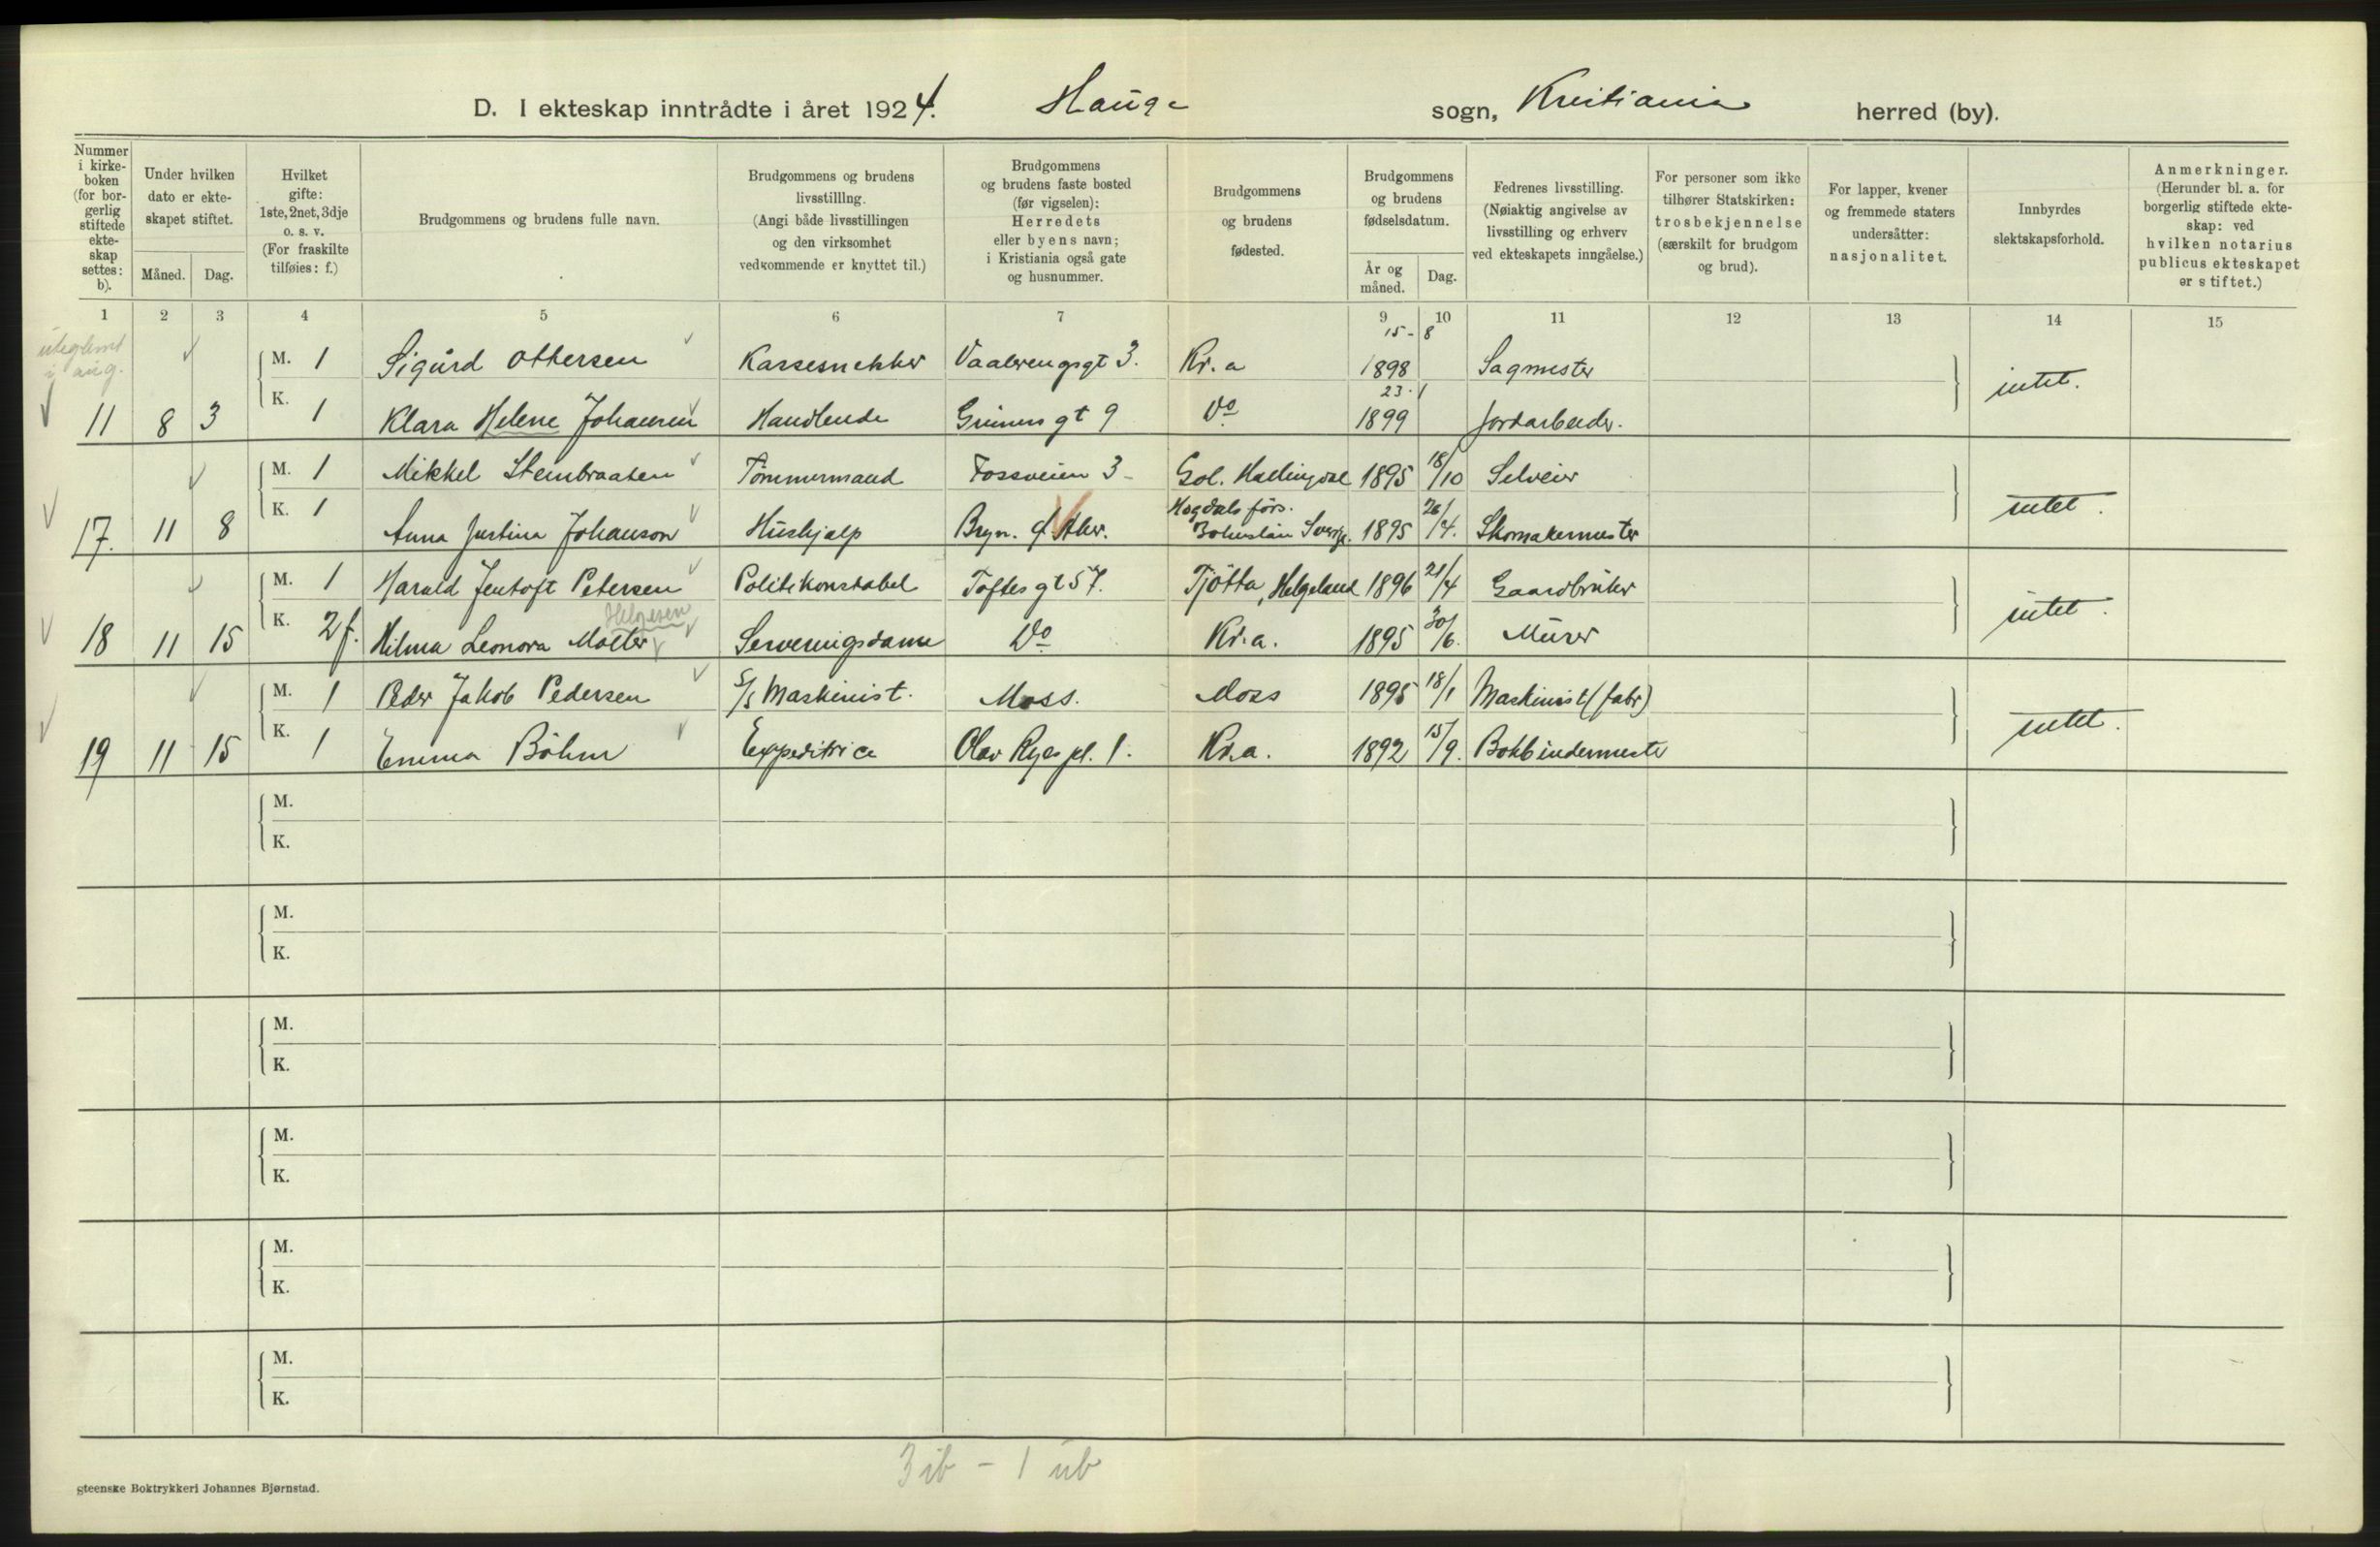 D. I ekteskap inntrådte i året 1924. Hauge sogn, Kristiania herred (by).
Nummer i kirke- boken (for bor- gerlig stiftede ekte- skap settes: b).
Under hvilken dato er ekte- skapet stiftet.
Måned. Dag.
Hvilket gifte: 1ste, 2net, 3dje o. s. v. (For fraskilte tilføies: f.)
Brudgommens og brudens fulle navn.
Brudgommens og brudens livsstilllng. (Angi både livsstillingen og den virksomhet vedkommende er knyttet til.)
Brudgommens og brudens faste bosted (før vigselen): Herredets eller byens navn; i Kristiania også gate og husnummer.
Brudgommens og brudens fødested.
Brudgommens og brudens fødselsdatum.
År og måned. Dag.
Fedrenes livsstilling. (Nøiaktig angivelse av livsstilling og erhverv ved ekteskapets inngåelse.)
For personer som ikke tilhører Statskirken: trosbekjennelse (særskilt for brudgom og brud).
For lapper, kvener og fremmede staters undersåtter: nasjonalitet.
Innbyrdes slektskapsforhold.
Anmerkninger. (Herunder bl. a. for borgerlig stiftede ekte- skap: ved hvilken notarius publicus ekteskapet er stiftet.)
1 2 3 4 5 6 7 9 10 11 12 13 14 15
uteglemt i aug.
M. 1 Sigurd Ottersen Kassesnekker Vaalerengsgt 3. Kr.a 15-8 1898 Sagmester
11 8 3 K. 1 Klara Helene Johansen Handlende Grüners gt 9 Do 23.1 1899 Jordarbeider. intet.
M. 1 Mikkel Stenbraaten Tömmermand Fossveien 3 Gol. Hallingdal 1895 18/10 Selveier
17. 11 8 K. 1 Anna Justina Johanson Hushjælp Bryn. Ø. Aker. Hogdals förs. Bohuslän Sverige. 1895 26/4. Skomakermester intet.
M. 1 Harald Jentoft Petersen Politikonstabel Toftes gt 57. Tjötta, Helgeland 1896 21/4 Gaardbruker
18 11 15 K. 2 f. Hilma Leonora Møller Helgesen Serveringsdame Do Kr.a. 1895 30/6. Murer intet.
M. 1 Peder Jakob Pedersen S/S Maskinist. Moss. Moss 1895 18/1 Maskinist (fabr)
19 11 15 K. 1 Emma Böhm Expeditrice Olav Ryes pl. 1. Kr.a. 1892 15/9. Bokbindermester intet.
M.
K.
M.
K.
M.
K.
M.
K.
M.
K.
M.
K.
3 ib - 1 ub
gteenske Boktrykkeri Johannes Bjørnstad.